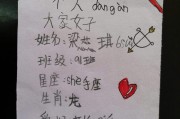 个人dàngàn
大家女子
姓名:梁 琪
班级:91班
星座:she手座
生肖:龙